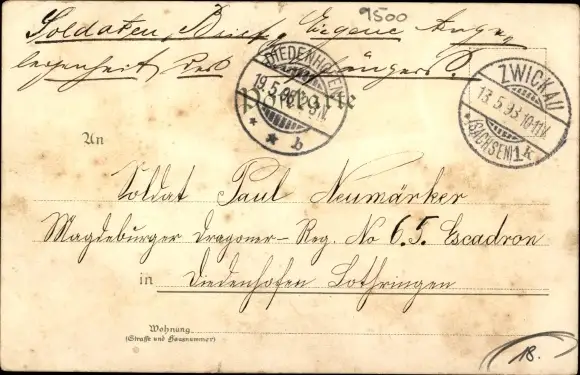 9500
Soldaten Brief, Eigene Ange-
legenheit des Empfängers.
DIEDENHOFEN
19.5.98
* * b
ZWICKAU
13.5.98 10-11V.
*(SACHSEN)1k
Postkarte
An
Soldat Paul Neumärker
Magdeburger Dragoner-Reg. No 6. 5. Escadron
in Diedenhofen Lothringen
Wohnung
(Straße und Hausnummer)
18.